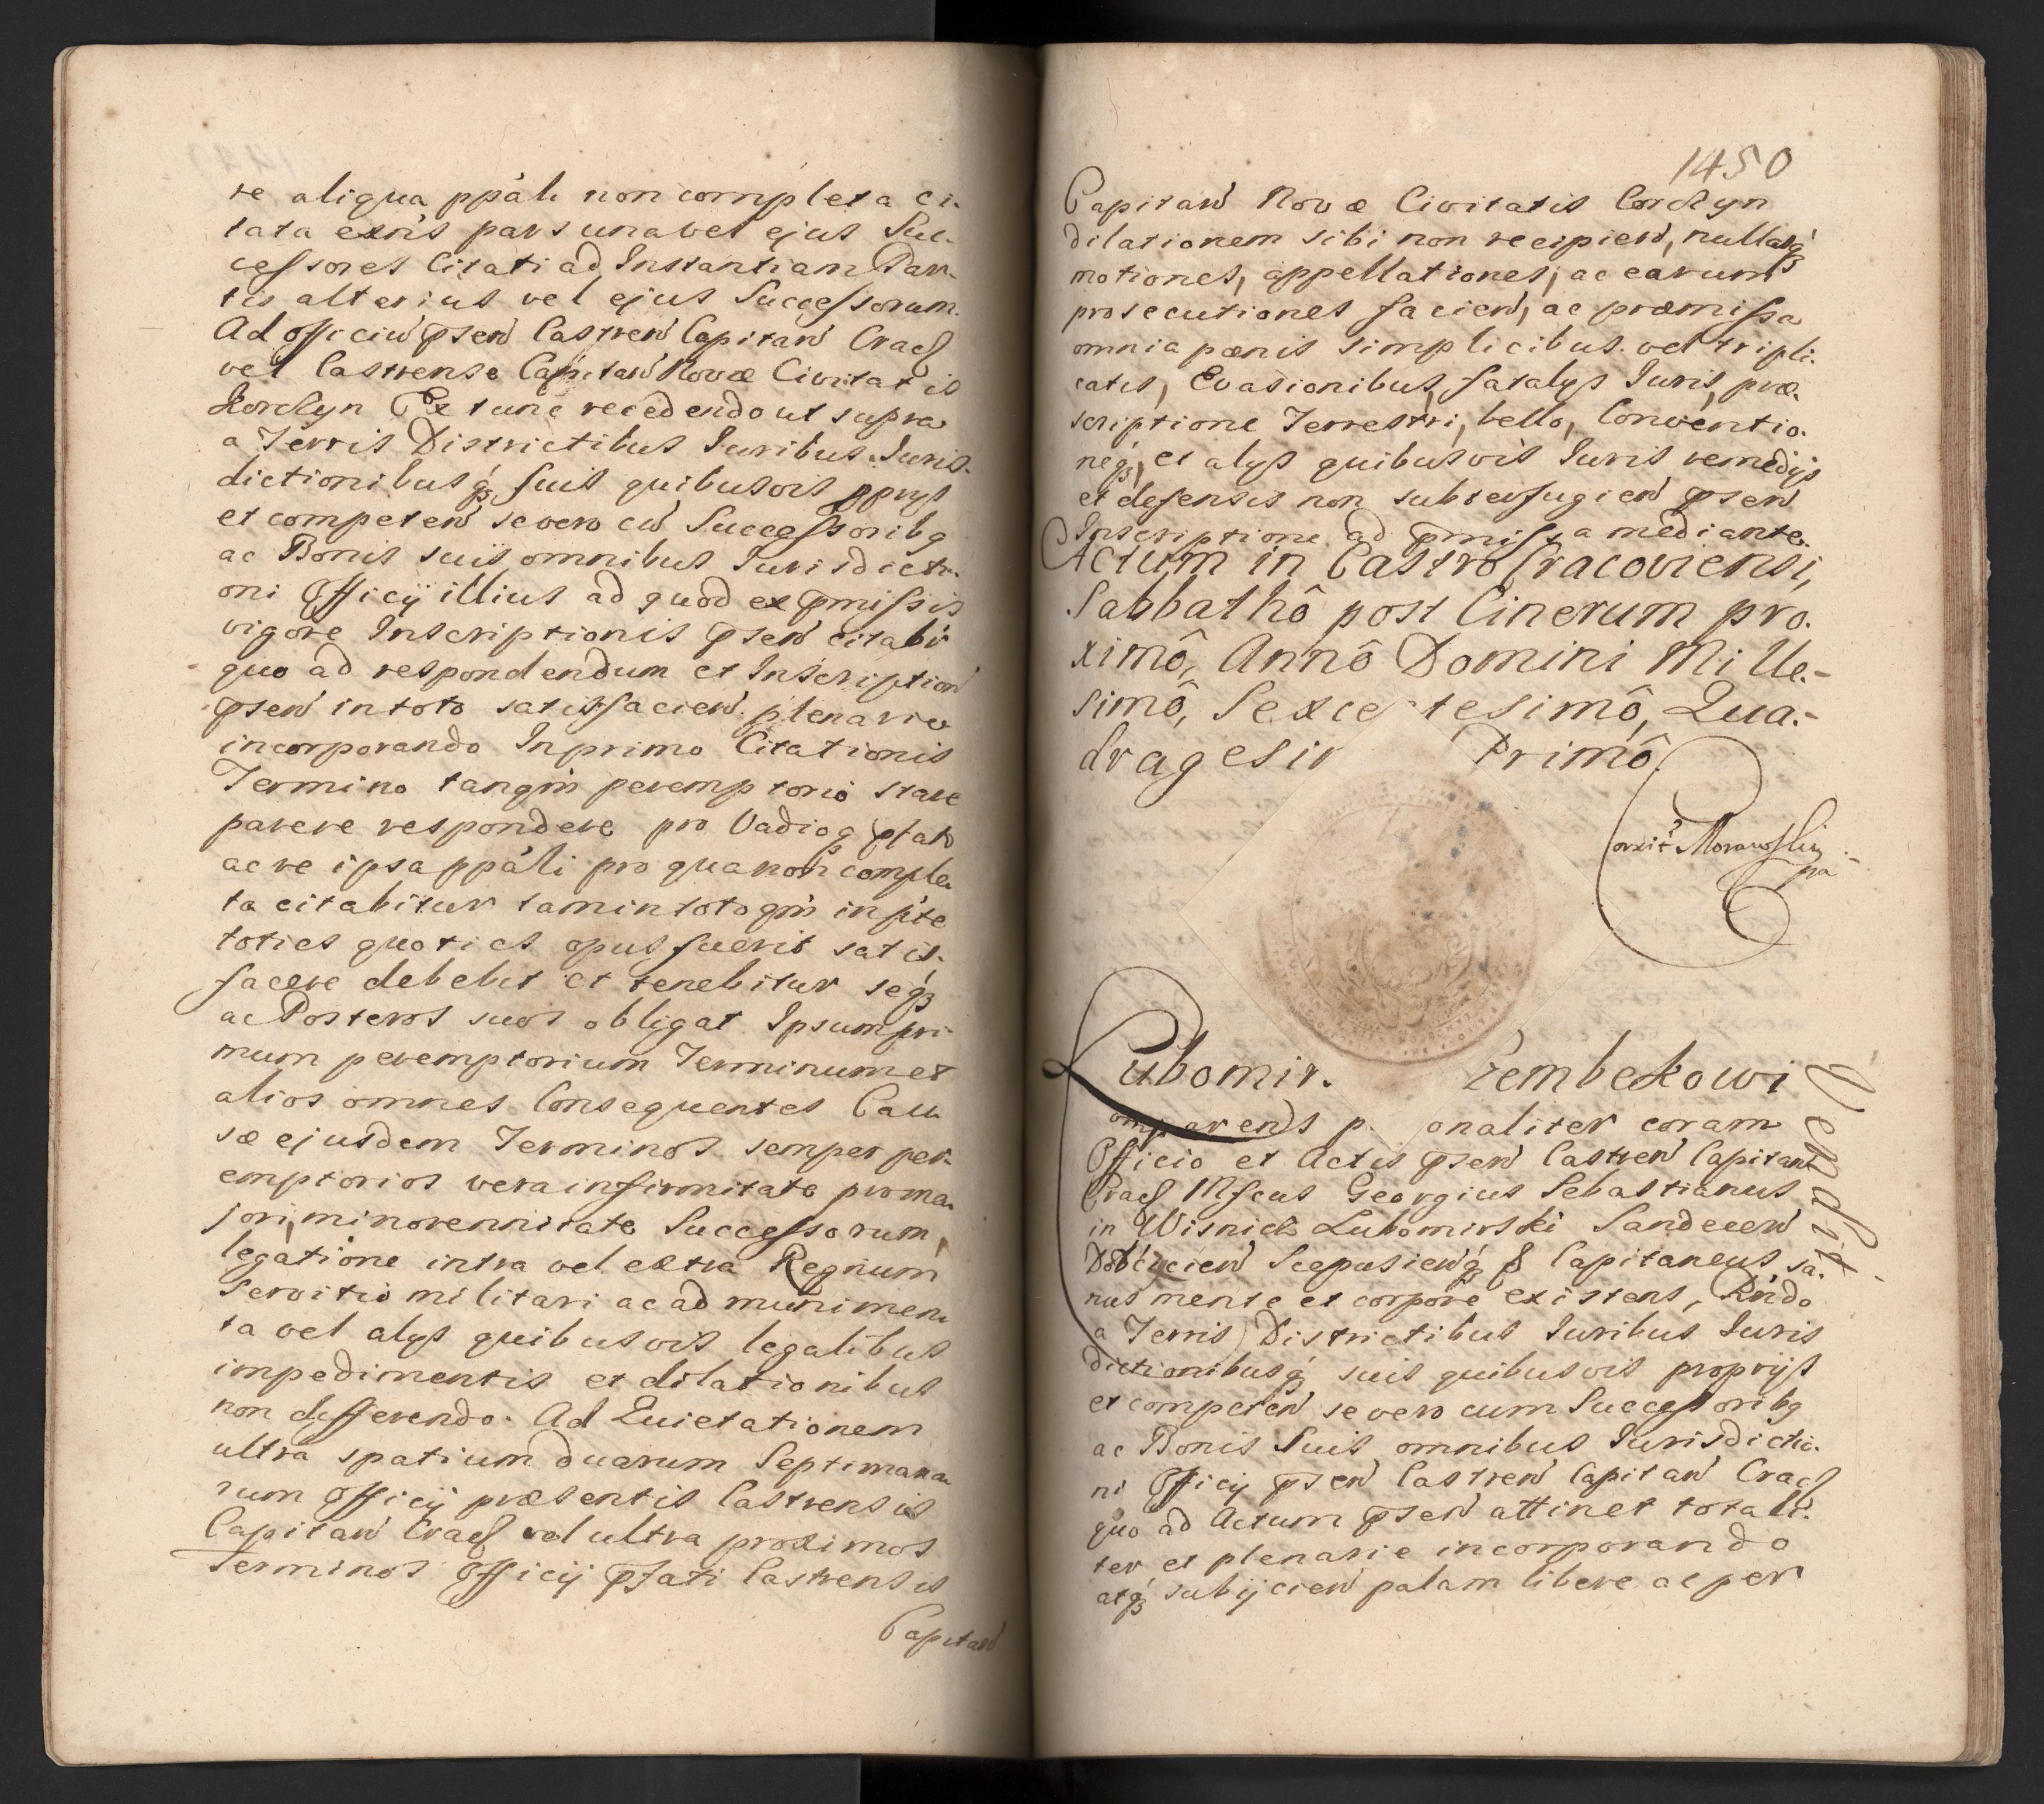 re aliqua ppáli non completa ci-
tata exn̄s pars una vel ejus Suc-
cessores Citati ad Instantiam Par-
tis alterius vel ejus Successorum.
Ad officiū p̄sen̄ Castren̄ Capitan̄ Crac̄
vel Castrense Capitan̄ Novæ Civitatis
Korczyn Ex tunc recedendo ut supra
a Terris Districtibus Iuribus Iuris-
dictionibusq́ꝫ suis quibusvis pprys
et competen̄ se vero cū Successoribq
ac Bonis suis omnibus Iurisdicti-
oni Officij illius ad quod ex p̄missis
vigore Inscriptionis p̄sen̄ citabr̄
quo ad respondendum et Inscription̄
p̄sen̄ in toto satisfacien̄ plenarie
incorporando In primo Citationis
Termino tanqm̄ peremptorio stare
parere respondere pro Vadioqꝫ p̄fato
ac re ipsa ppáli pro qua non comple-
ta citabitur tam in toto qm̄ in pte
toties quoties opus fuerit satis-
facere debebit et tenebitur seq́ꝫ
ac Posteros suos obligat Ipsum pri-
mum peremptorium Terminum et
alios omnes Consequentes Cau-
sæ ejusdem Terminos semper per-
emptorios vera infirmitate pro ma-
jori, minorennitate Successorum,
legatione intra vel extra Regnum
servitio militari ac ad munimen-
ta vel alys quibusvis legalibus
impedimentis et dilationibus
non differendo. Ad Quietationem
ultra spatium duarum Septimana-
rum Officij præsentis Castrensis
Capitan̄ Crac̄ vel ultra proximos
Terminos Officij p̄fati Castrensis
Capitan̄
1450
Capitan̄ Novæ Civitatis Corczyn
dilationem sibi non recipien̄, nullasq́ꝫ
motiones, appellationes, ac earum
prosecutiones facien̄, ac præmissa
omnia pænis simplicibus vel tripli-
catis, Evasionibus, fatalys Iuris, præ-
scriptione Terrestri, bello, Conventio-
neq́ꝫ, et alys quibusvis Iuris remedijs
et defensis non subterfugien̄ p̄sen̄
Inscriptione ad p̄missa mediante.
Actum in Castro Cracoviensi,
Sabbathô post Cinerum pro-
ximô, Annô Domini Mille-
simô, Sexce tesimô, Qua-
dragesim Primô.
Corxit Morawski
pa
Lubomir. zembekowi
Vendit
omparens p. onaliter coram
Officio et Actis p̄sen̄ Castren̄ Capitan̄
Crac̄ Mfcus Georgius Sebastianus
in Wisnicz Lubomirski Sandecen̄
Dobczicien̄ Scepusien̄q́ꝫ & Capitaneus sa-
nus mente et corpore existens, Rndo
a Terris Districtibus Iuribus Iuris
dictionibusq́ꝫ suis quibusvis proprijs
et competen̄ se vero cum Successoribq
ac Bonis Suis omnibus Iurisdictio-
ni Officij p̄sen̄ Castren̄ Capitan̄ Crac̄
quo ad Actum p̄sen̄ attinet totali-
ter et plenarie incorporando
atq́ꝫ subijcien̄ palam libere ac per